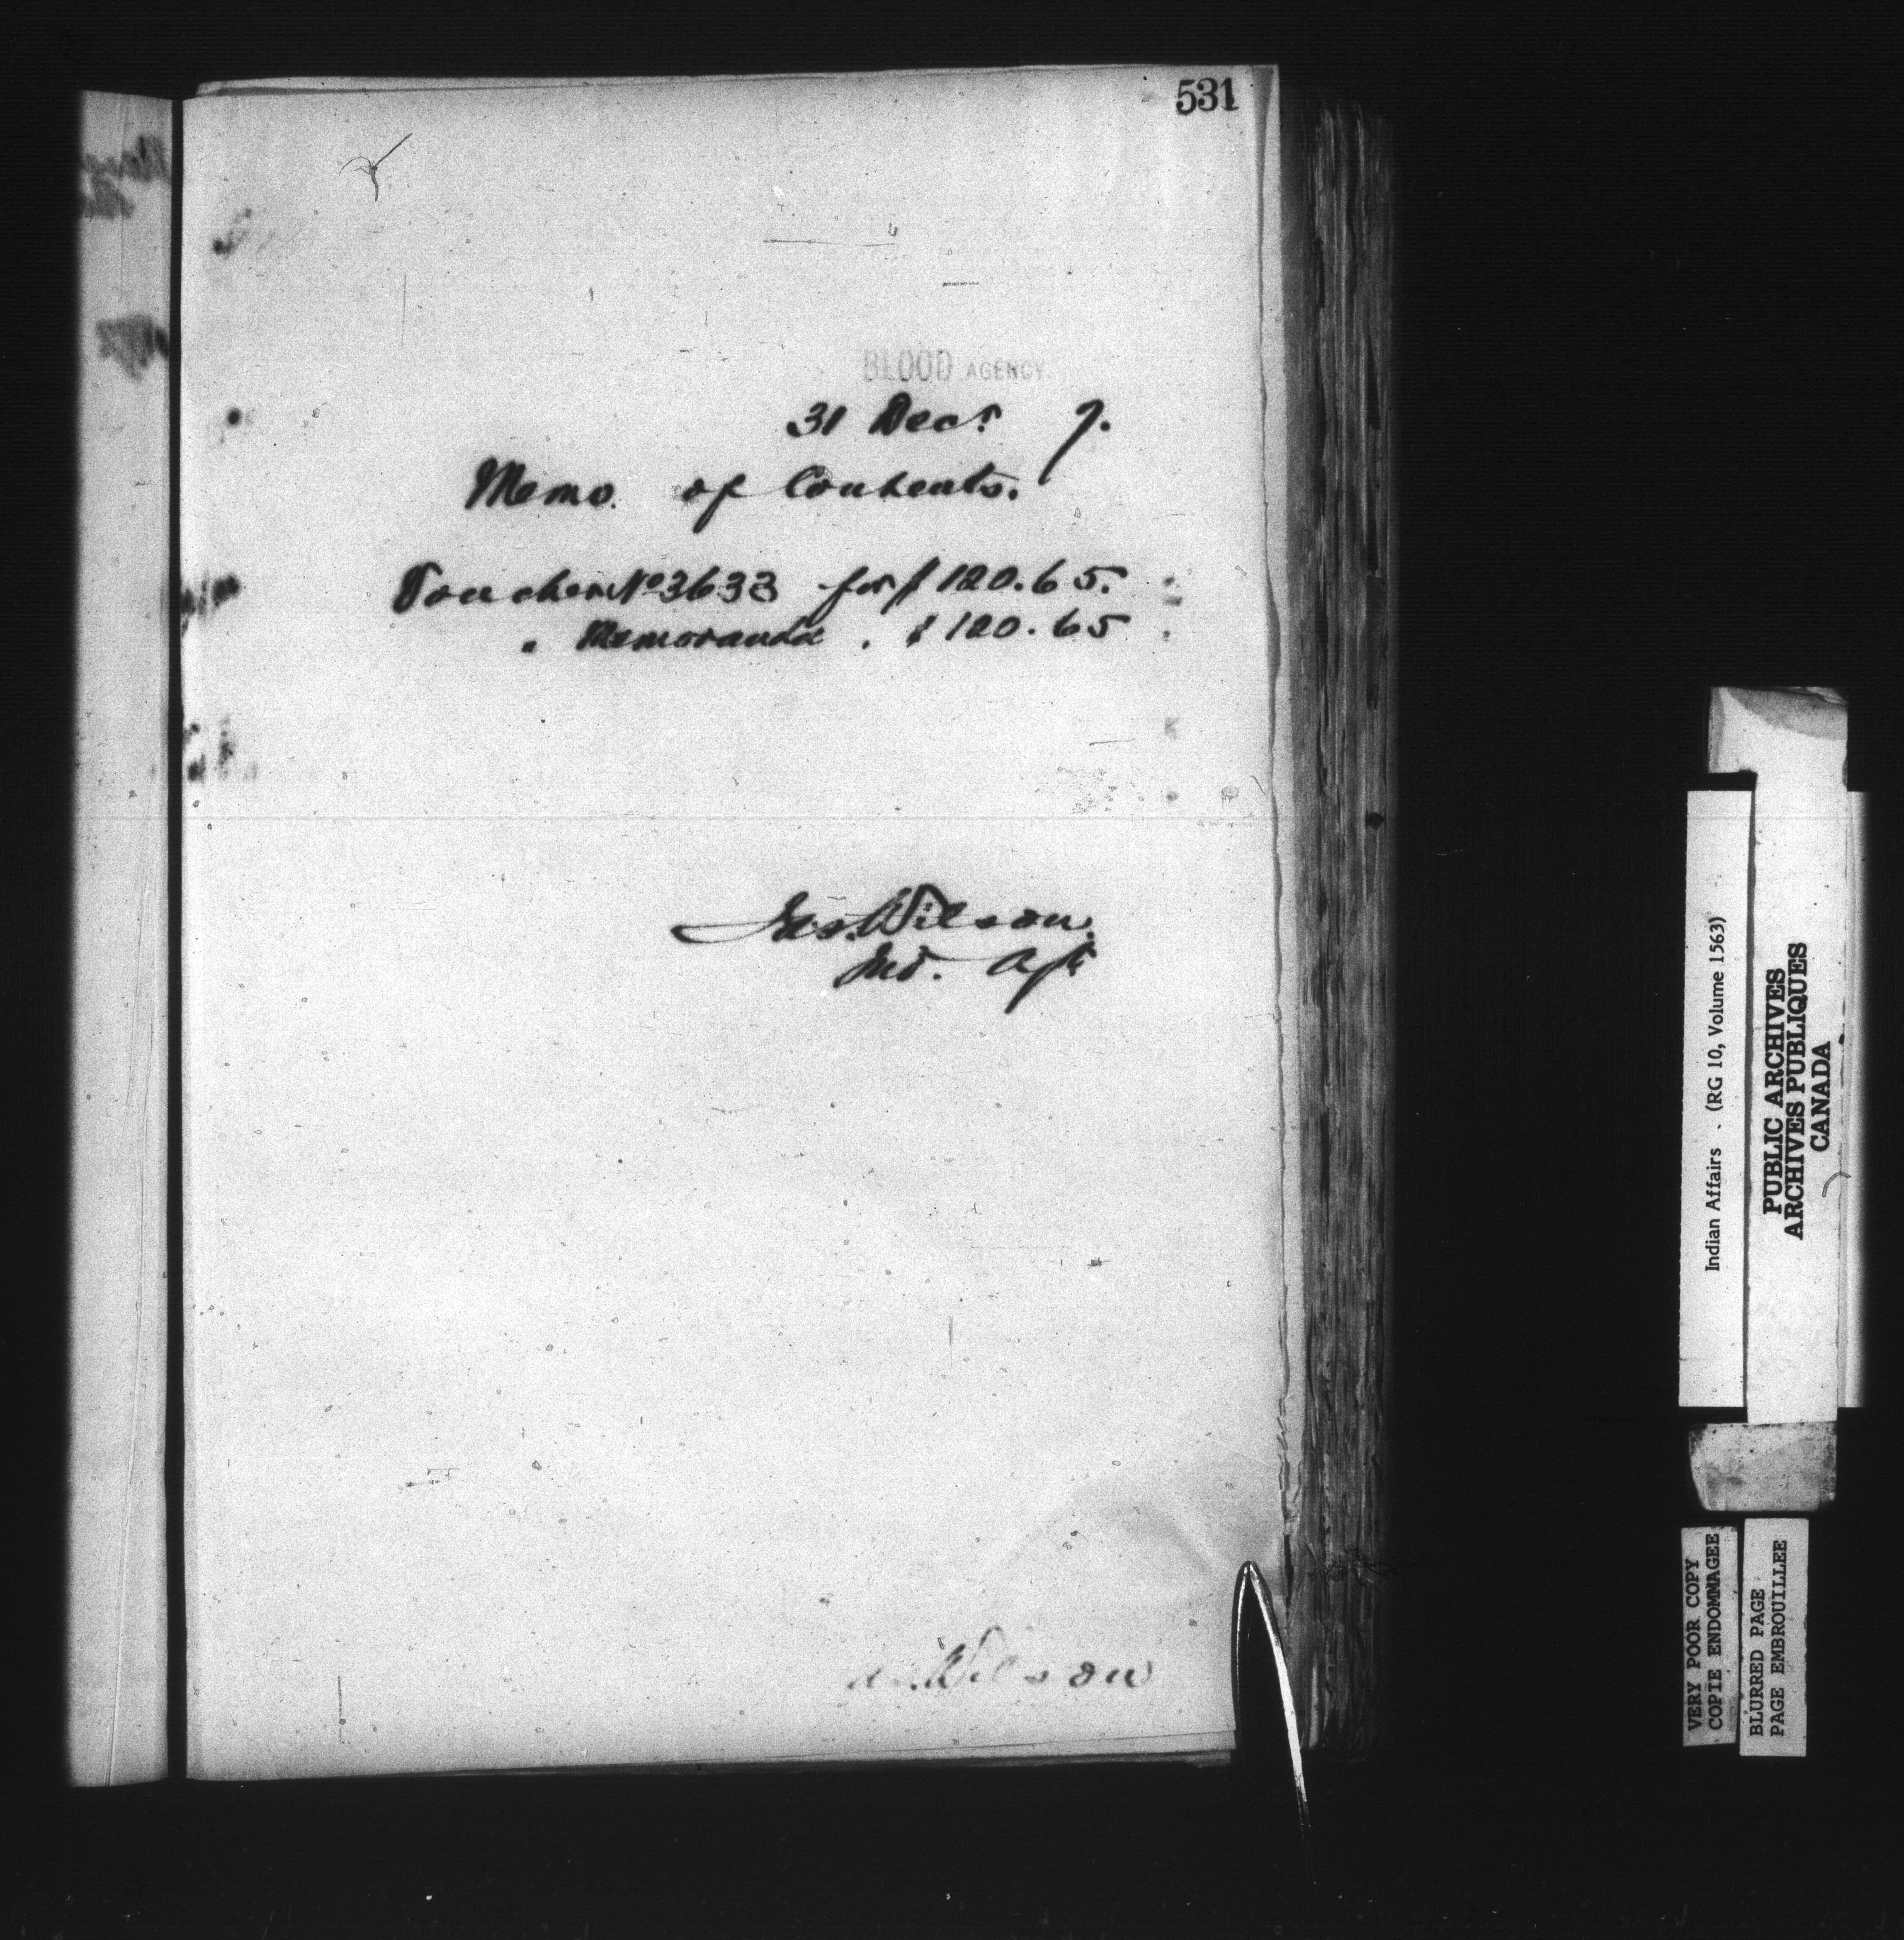 531
BLOOD AGENCY.
31 Decr 7.
Memo. of Contents.
Voucher No 3633 for $120.65.
" Memoranda . $120.65
Jas. Wilson.
Ind. Agt
Wilson
Indian Affairs . (RG 10, Volume 1563)
PUBLIC ARCHIVES
ARCHIVES PUBLIQUES
CANADA
VERY POOR COPY
COPIE ENDOMMAGEE
BLURRED PAGE
PAGE EMBROUILLEE